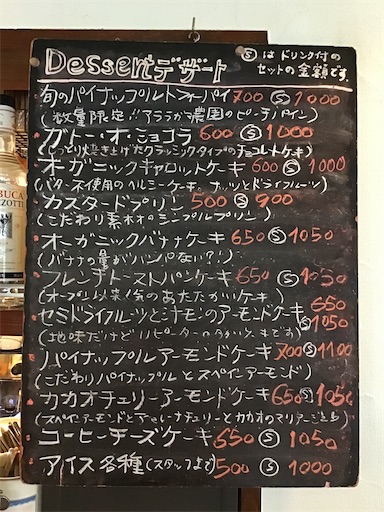 Dessert デザート
Ⓢは ドリンク付の
セットの金額です。
旬のパイナップルトフィーパイ 700 Ⓢ 1000
(数量限定!! アララガマ農園のピーチパイン)
ガトー・オ・ショコラ 600 Ⓢ 1000
(しっとり焼き上げたクラシックタイプのチョコレートケーキ)
オーガニックキャロットケーキ 600 Ⓢ 1000
(バター不使用のヘルシーケーキ、ナッツとドライフルーツ)
カスタードプリン 500 Ⓢ 900
(こだわり素材のシンプルプリン)
オーガニックバナナケーキ 650 Ⓢ 1050
(バナナの量がハンパない?!)
フレンチトーストパンケーキ 650 Ⓢ 1050
(オープン以来人気のあたたかいケーキ)
セミドライフルーツと洋モンのアーモンドケーキ 650
Ⓢ 1050
(地味だけどリピーターの多いケーキです)
パイナップルアーモンドケーキ 700 Ⓢ 1100
(こだわりパイナップルとスペインアーモンド)
カカオチェリーアーモンドケーキ 650 Ⓢ 1050
(スペインアーモンドと チェリーとカカオのマリアージュ)
コーヒーチーズケーキ 650 Ⓢ 1050
アイス各種 (スタッフまで) 500 Ⓢ 1000
BUCA
ZOTTI